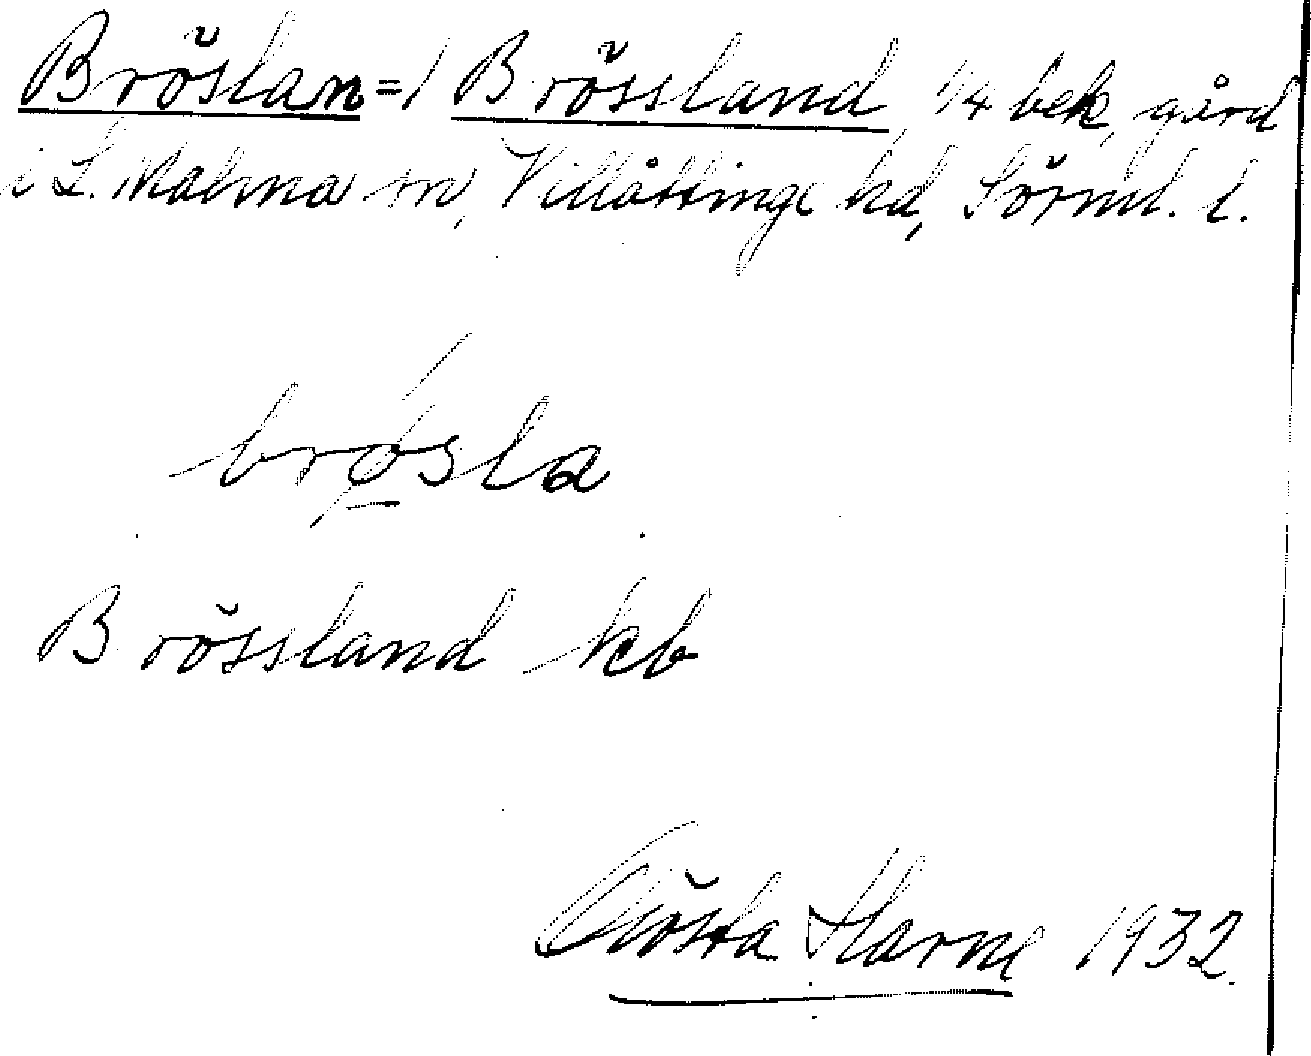 Bröslan = / Brössland, 1/4 bek, gård
i L. Malma sn, Villåttinge hd, Sörml. l.
brøsla
Brössland kb
Gösta Harne 1932.